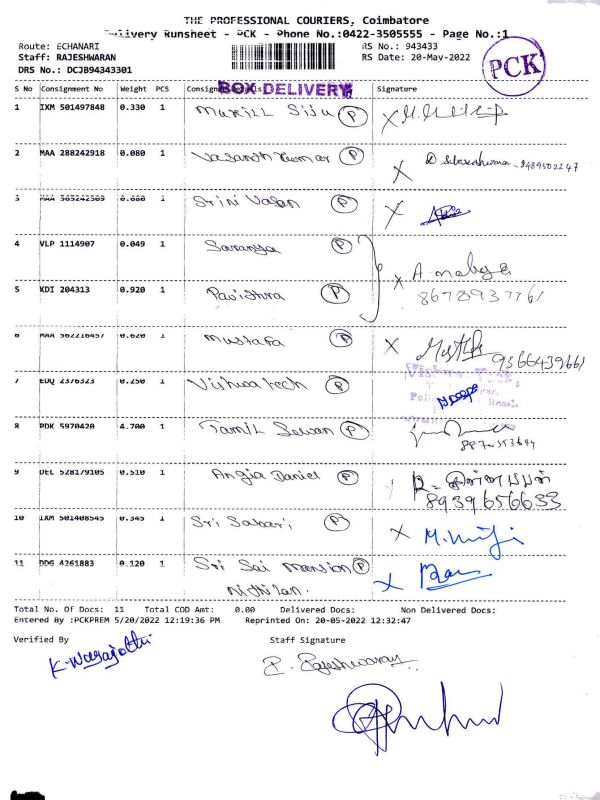 THE PROFESSIONAL COURIERS, Coimbatore
Delivery Runsheet - PCK - Phone No.:0422-3505555 - Page No.:1
Route: ECHANARI RS No.: 943433
Staff: RAJESHWARAN RS Date: 20-May-2022
DRS No.: DCJB94343301
PCK
BOX DELIVERY
S No Consignment No Weight PCS Consignee Details Signature
1 IXM 501497848 0.330 1 P
2 MAA 288242918 0.080 1 Vasanth Kumar P 8489502247
3 MAA 565242569 0.080 1 Srini Vasan P
4 VLP 1114907 0.049 1 Saranya P
5 KDI 204313 0.920 1 Pavithra P
6 MAA 562216457 0.620 1 Mustafa P 9366439661
7 EDQ 2376323 0.250 1 Vishwa tech P
8 PDK 5970420 4.700 1 Tamil Selvan P
9 DEL 528179105 0.510 1 Angia Daniel P
8939656633
10 IXM 501408545 0.345 1 Sri Sabari P
11 DDG 4261883 0.120 1 Sri Sai Mansion P
Nithilan.
Total No. Of Docs: 11 Total COD Amt: 0.00 Delivered Docs: Non Delivered Docs:
Entered By :PCKPREM 5/20/2022 12:19:36 PM Reprinted On: 20-05-2022 12:32:47
Verified By Staff Signature
P. Rajeshwaran